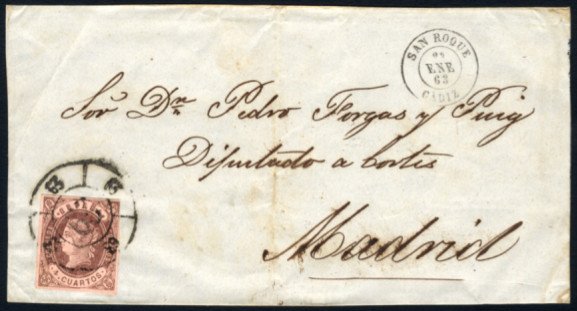 SAN ROQUE
ENE
63
CADIZ
Sor. Dn. Pedro Forgas y Puig
Diputado a Cortes
Madrid
4 CUARTOS